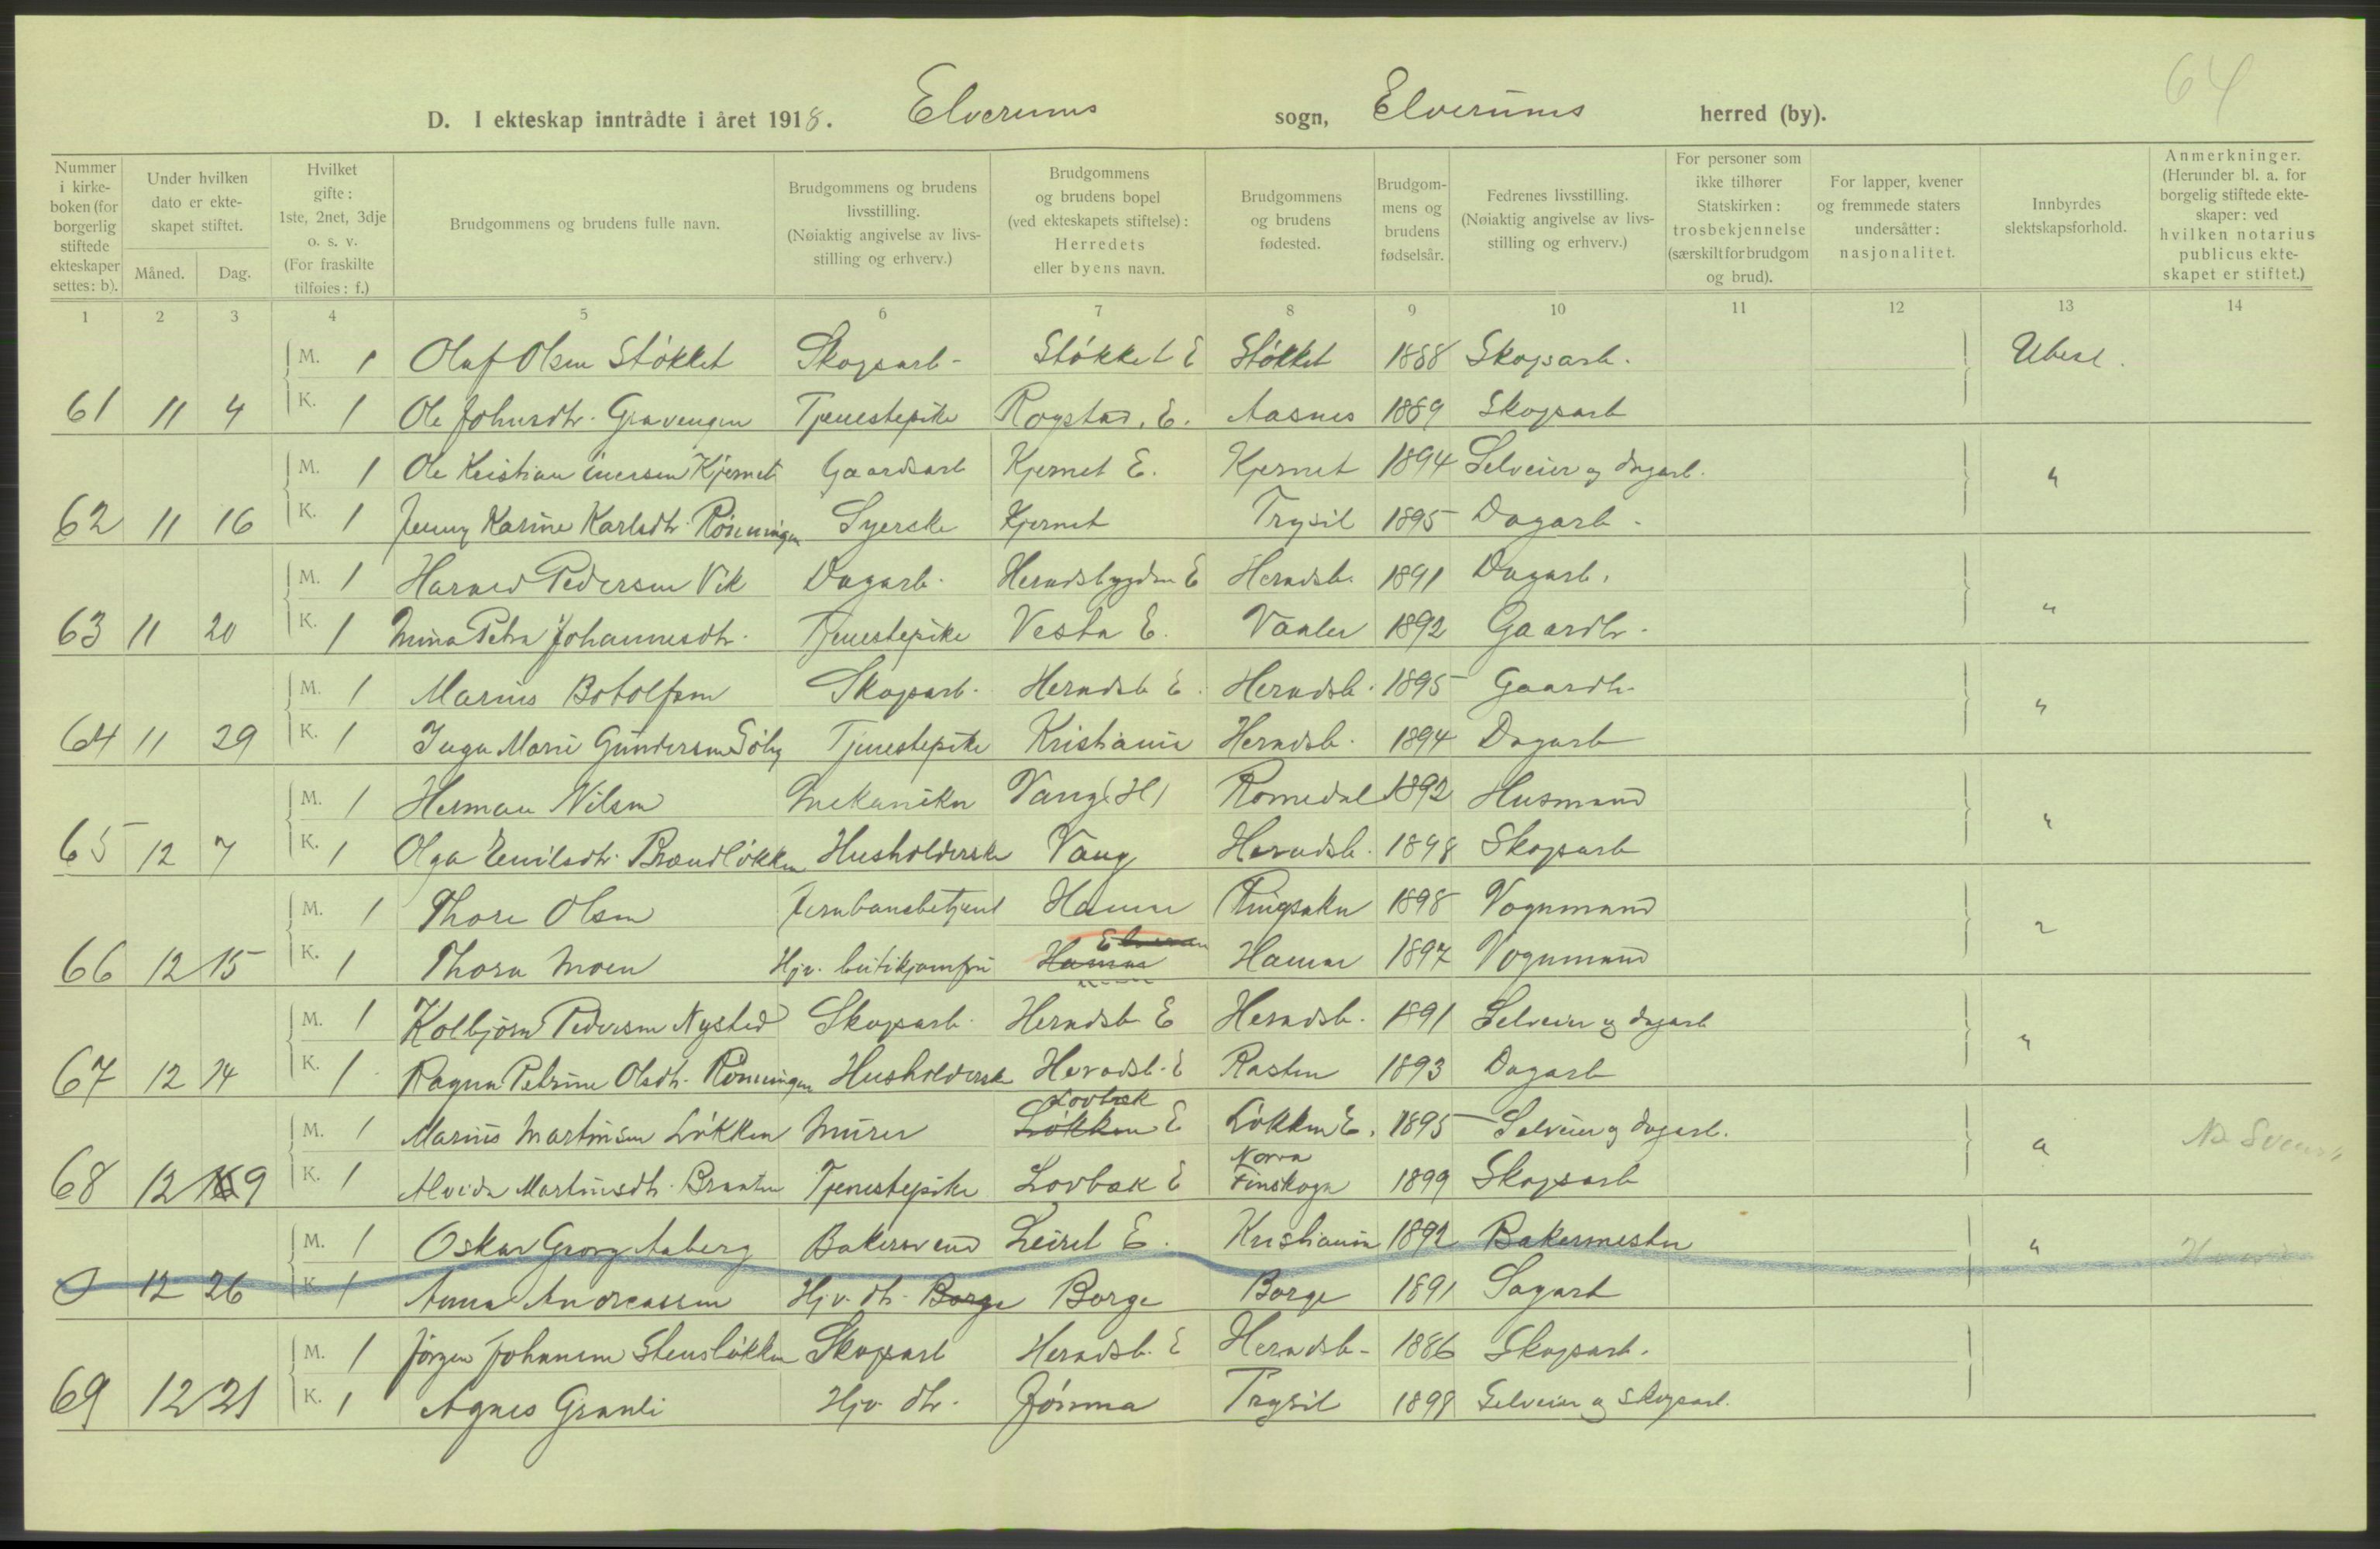 64
D. I ekteskap inntrådte i året 1918. Elverums sogn, Elverums herred (by).
Nummer i kirke-boken (for borgerlig stiftede ekteskaper settes: b).
Under hvilken dato er ekte-skapet stiftet.
Måned. Dag.
Hvilket gifte: 1ste, 2net, 3dje o. s. v. (For fraskilte tilføies: f.)
Brudgommens og brudens fulle navn.
Brudgommens og brudens livsstilling. (Nøiaktig angivelse av livs-stilling og erhverv.)
Brudgommens og brudens bopel (ved ekteskapets stiftelse): Herredets eller byens navn.
Brudgommens og brudens fødested.
Brudgom-mens og brudens fødselsår.
Fedrenes livsstilling. (Nøiaktig angivelse av livs-stilling og erhverv.)
For personer som ikke tilhører Statskirken: trosbekjennelse (særskilt for brudgom og brud).
For lapper, kvener og fremmede staters undersåtter: nasjonalitet.
Innbyrdes slektskapsforhold.
Anmerkninger. (Herunder bl. a. for borgelig stiftede ekte-skaper: ved hvilken notarius publicus ekte-skapet er stiftet.)
1 2 3 4 5 6 7 8 9 10 11 12 13 14
M. 1 Olaf Olsen Støkket Skogsarb- Støkket E Støkket 1888 Skogsarb. Ubesl.
61 11 4 K. 1 Ole Johnsdtr. Gravengen Tjenestepike Rogstad. E. Aasnes 1889 Skogsarb
M. 1 Ole Kristian Iversen Kjernet Gaardsarb Kjernet E. Kjernet 1894 Selveier og dagarb. "
62 11 16 K. 1 Jenny Karine Karlsdtr. Rönningen Syerske Kjernet Trysil 1895 Dagarb.
M. 1 Harald Pedersen Vik Dagarb. Heradsbygden E Heradsb. 1891 Dagarb. "
63 11 20 K. 1 Mina Petra Johannesdtr. Tjenestepike Vestad E. Vaaler 1892 Gaardbr.
M. 1 Marius Botolfsen Skogsarb. Heradsb E. Heradsb. 1895 Gaardb. "
64 11 29 K. 1 Inga Marie Gundersen Söby Tjenestepike Kristiania Heradsb. 1894 Dagarb
M. 1 Herman Nilsen Mekaniker Vang (H) Romedal 1892 Husmand "
65 12 7 K. 1 Olga Emilsdtr. Brændløkken Husholderske Vang Heradsb. 1898 Skogsarb
M. 1 Thore Olsen Jernbanebetjent Hamar Ringsaker 1898 Vognmand "
66 12 15 K. 1 Thora Moen Hjv. butikjomfru Hamar Elverum Hamar 1897 Vognmand
M. 1 Kolbjörn Pedersen Nysted Skogsarb. Heradsb E Heradsb. 1891 Selveier og dagarb "
67 12 14 K. 1 Ragna Petrine Olsdtr. Rönningen Husholderske Heradsb. E Rasten 1893 Dagarb
M. 1 Marius Martinsen Løkken Murer Løkken Lovbæk E Løkken E. 1895 Selveier og dagarb. "
68 12 19 K. 1 Alvida Martinsdtr. Braaten Tjenestepike Lovbæk E Norra Finskoga 1899 Skogsarb
M. 1 Oskar Georg Aaberg Bakersvend Leiret E. Kristiania 1892 Bakermester "
0 12 26 K. 1 Anna Andreassen Hjv. dtr. Borge Borge Borge 1891 Sagarb
M. 1 Jörgen Johansen Stensløkken Skogsarb Heradsb. E Heradsb. 1886 Skogsarb.
69 12 21 K. 1 Agnes Granli Hjv. dtr. Jömna Trysil 1898 Selveier og skogsarb.